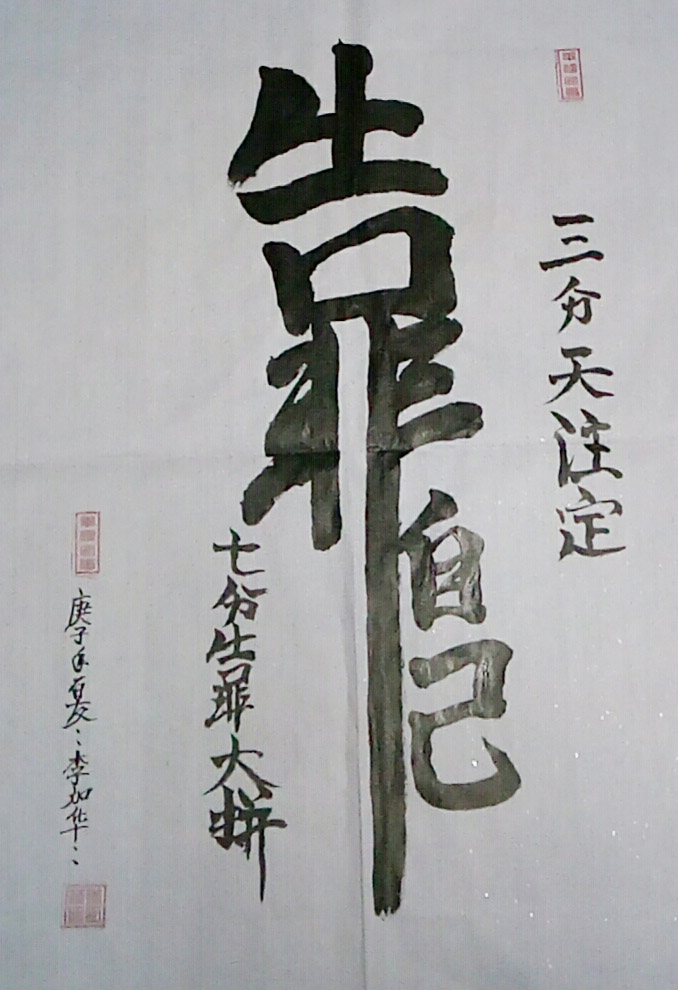 三分天注定
靠自己
七分靠大拼
庚子年夏：李加华：